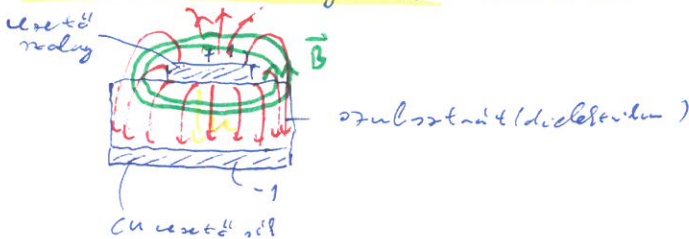 vezető
szalag
B
szubsztrát (dielektrikum)
-1
Cu vezető sík